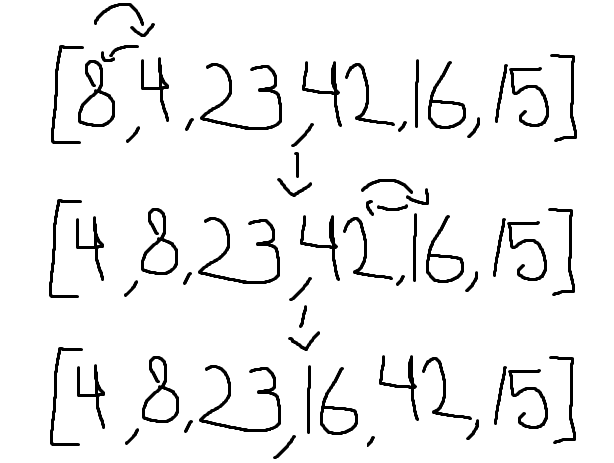 [8,4,23,42,16,15]
[4,8,23,42,16,15]
[4,8,23,16,42,15]